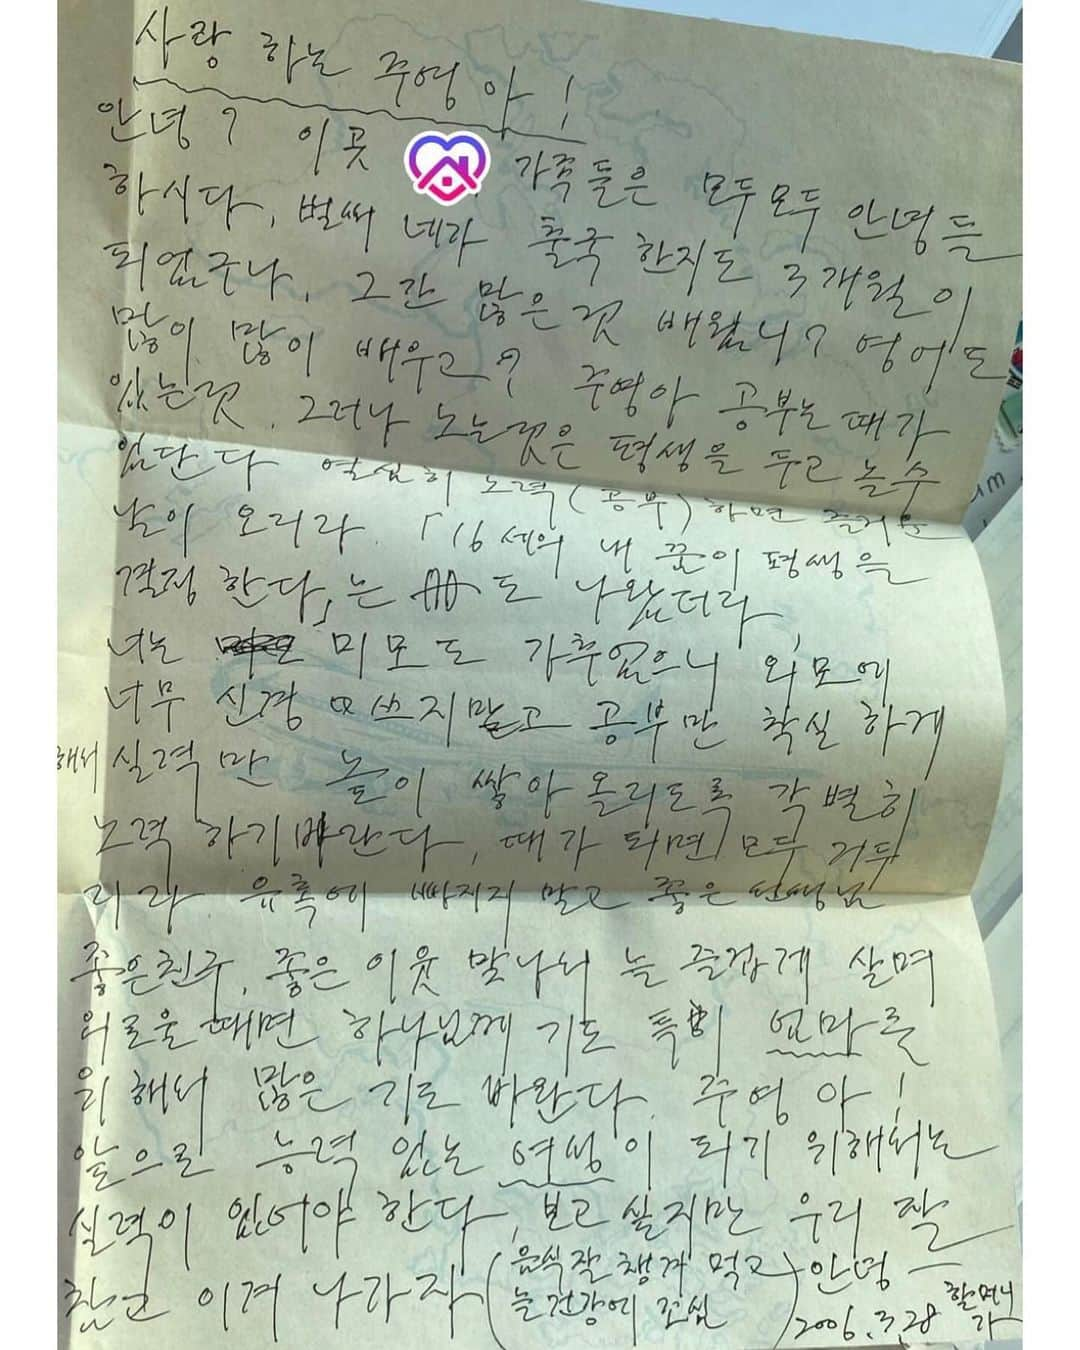 사랑 하는 주영 아!
안녕? 이곳 가족들은 모두모두 안녕들
하시다, 벌써 네가 출국 한지도 3개월이
되었구나. 그간 많은것 배웠니? 영어도
많이 많이 배우고? 주영아 공부는 때가
있는것. 그러나 노는것은 평생을 두고 놀수
있단다 열심히 노력(공부)하면 즐거운
날이 오리라. 「16세의 내 꿈이 평생을
결정 한다」는 도 나왔더라,
너는 미모도 가추었으니 외모에
너무 신경 쓰지말고 공부만 착실 하게
해서 실력만 높이 쌓아 올리도록 각별히
노력 하기바란다, 때가 되면 모두 거두
리라 유혹에 빠지지 말고 좋은 선생님
좋은친구, 좋은 이웃 만나서 늘 즐겁게 살며
외로울때면 하나님께 기도 특히 엄마를
위해서 많은 기도 바란다. 주영아!
앞으로 능력 있는 여성이 되기 위해서는
실력이 있어야 한다, 보고 싶지만 우리 잘
참고 이겨 나가자 (음식잘 챙겨 먹고
늘 건강에 조심) 안녕
2006.3.28 할머니
가